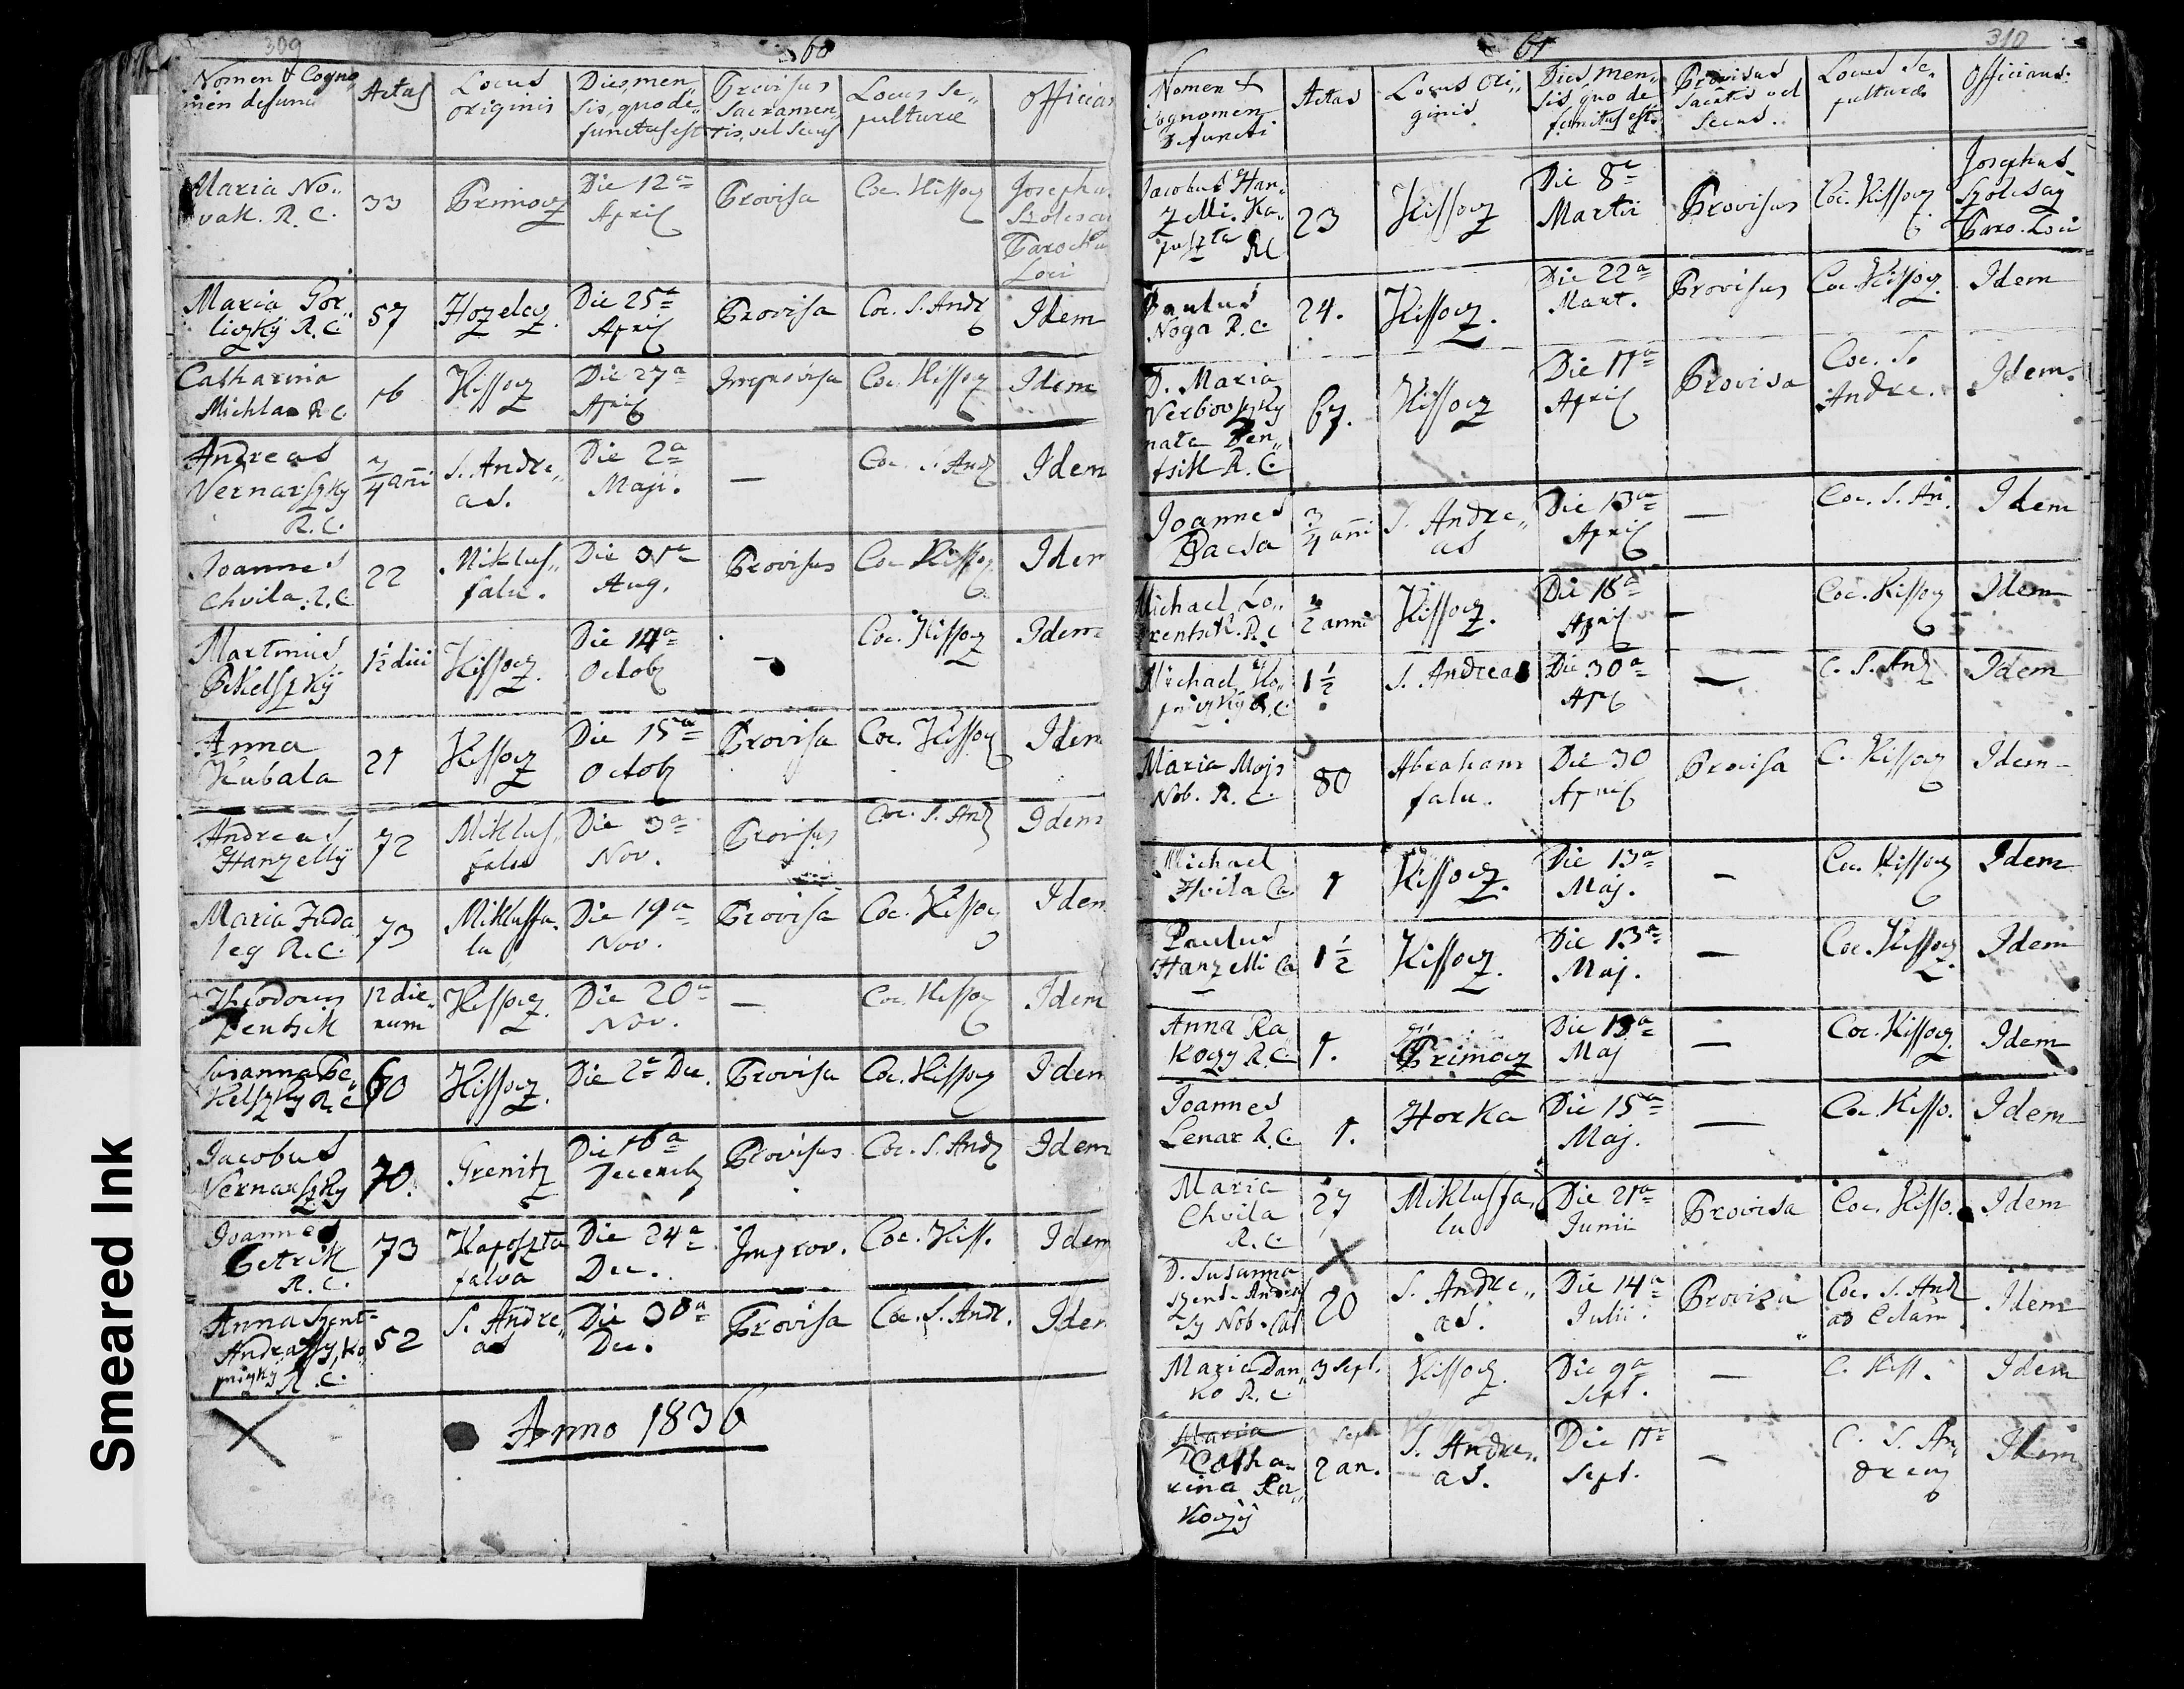 309
60
Nomen & Cogno„ men defuncti | Aetas | Locus originis | Dies, men„ sis, quo de„ functus est | Provisus Sacramen„ tis, vel secus | Locus Se„ pulturae | Officians
Maria No„ vak. R. C. | 33 | Primocz | Die 12ª April | Provisa | Coe. Kissocz | Josephus Szolcsay Parochus Loci
Maria Gor„ liczky R. C. | 57 | Hozelecz | Die 25ª April | Provisa | Coe. S. Andr | Idem
Catharina Michla R. C. | 16 | Kissocz | Die 27ª April | Improvisa | Coe. Kissocz | Idem
Andreas Vernarszky R. C. | 3/4 añi | S. Andre„ as. | Die 2ª Maji. | — | Coe. S. And | Idem
Joannes Chvila. R. C. | 22 | Miklus„ falu. | Die 31ª Aug. | Provisus | Coe Kissocz | Idem
Martinus Pikelszky | 1½ diei | Kissocz. | Die 14ª Octob | — | Coe. Kissocz | Idem
Anna Kubala | 21 | Kissocz | Die 15ª Octob | Provisa | Coe. Kissocz | Idem
Andreas Hanzelly | 72 | Miklus„ falu | Die 3ª Nov. | Provisus | Coe. S. And | Idem
Maria Fuda leg R. C. | 73 | Miklussfa„ lu | Die 19ª Nov. | Provisa | Coe. Kissocz | Idem
Zentsik | 12 die„ rum | Kissocz | Die 20ª Nov. | — | Coe. Kissocz | Idem
Susanna Pe„ kelszky R. C. | 60 | Kissocz. | Die 2ª Dec. | Provisa | Coe. Kissocz | Idem
Jacobus Vernarszky | 70. | Grenitz | Die 16ª Decemb | Provisus | Coe. S. And | Idem
Joannes Petrik R. C. | 73 | Kaposzta falva | Die 24ª Dec. | Improv. | Coe. Kiss. | Idem
Anna Szent- Andrassy, Ko„ pniczky R. C. | 52 | S. Andre„ as | Die 30ª Dec. | Provisa | Coe. S. Andr. | Idem
Anno 1836
61
310
Nomen & Cognomen Defuncti | Aetas | Locus Ori„ ginis | Dies, men„ sis, quo de functus est. | Provisus Sacatis vel Secus. | Locus Se„ pulturae | Officians.
Jacobus Han„ zelli. Ka„ puszta RC | 23 | Kissocz | Die 8ª Martii | Provisus | Coe. Kissocz | Josephus Szolcsay Paro. Loci
Paulus Noga R. C. | 24. | Kissocz. | Die 22ª Mart. | Provisus | Coe Kissocz. | Idem
D. Maria Verbovszky nata Zen„ tsik R. C. | 67. | Kissocz | Die 11ª April | Provisa | Coe. S. Andre. | Idem.
Joannes Bacsa | 3/4 añi | S. Andre„ as | Die 13ª April | — | Coe. S. An. | Idem
Michael Lo„ rentsik. R. C | 1/2 anni | Kissocz. | Die 18ª April | — | Coe. Kissocz | Idem
Michael Ko„ pniczky R. C | 1½ | S. Andreas | Die 30ª Apr | — | C. S. And | Idem
Maria Mojs Nob. R. C. | 80 | Abraham falu. | Die 30 April | Provisa | C. Kissocz | Idem
Michael Hvila Ca. | 1 | Kissocz. | Die 13ª Maj. | — | Coe. Kissocz | Idem
Paulus Hanzelli Ca | 1½ | Kissocz. | Die 13ª Maj. | — | Coe. Kissocz | Idem
Anna Ra koczy R. C. | 1. | Primocz | Die 13ª Maj | — | Coe. Kissocz. | Idem
Joannes Lenar R. C. | 1. | Horka | Die 15ª Maj. | — | Coe. Kisso. | Idem
Maria Chvila R. C. | 27 | Miklussfa„ lu | Die 21ª Junii | Provisa | Coe. Kisso. | Idem
D. Susanna Szent-Andras„ sy Nob. Cat | 20 | S. Andre„ as. | Die 14ª Julii. | Provisa | Coe. S. And ad Edam | Idem
Maria Dan„ ko R. C. | 3 Sept. | Kissocz. | Die 9ª Sept. | — | C. Kiss. | Idem
Maria Catha„ rina Ra„ koczy | Sept 2 an. | S. Andre„ as. | Die 11ª Sept. | — | C. S. An„ dreas | Idem
Smeared Ink